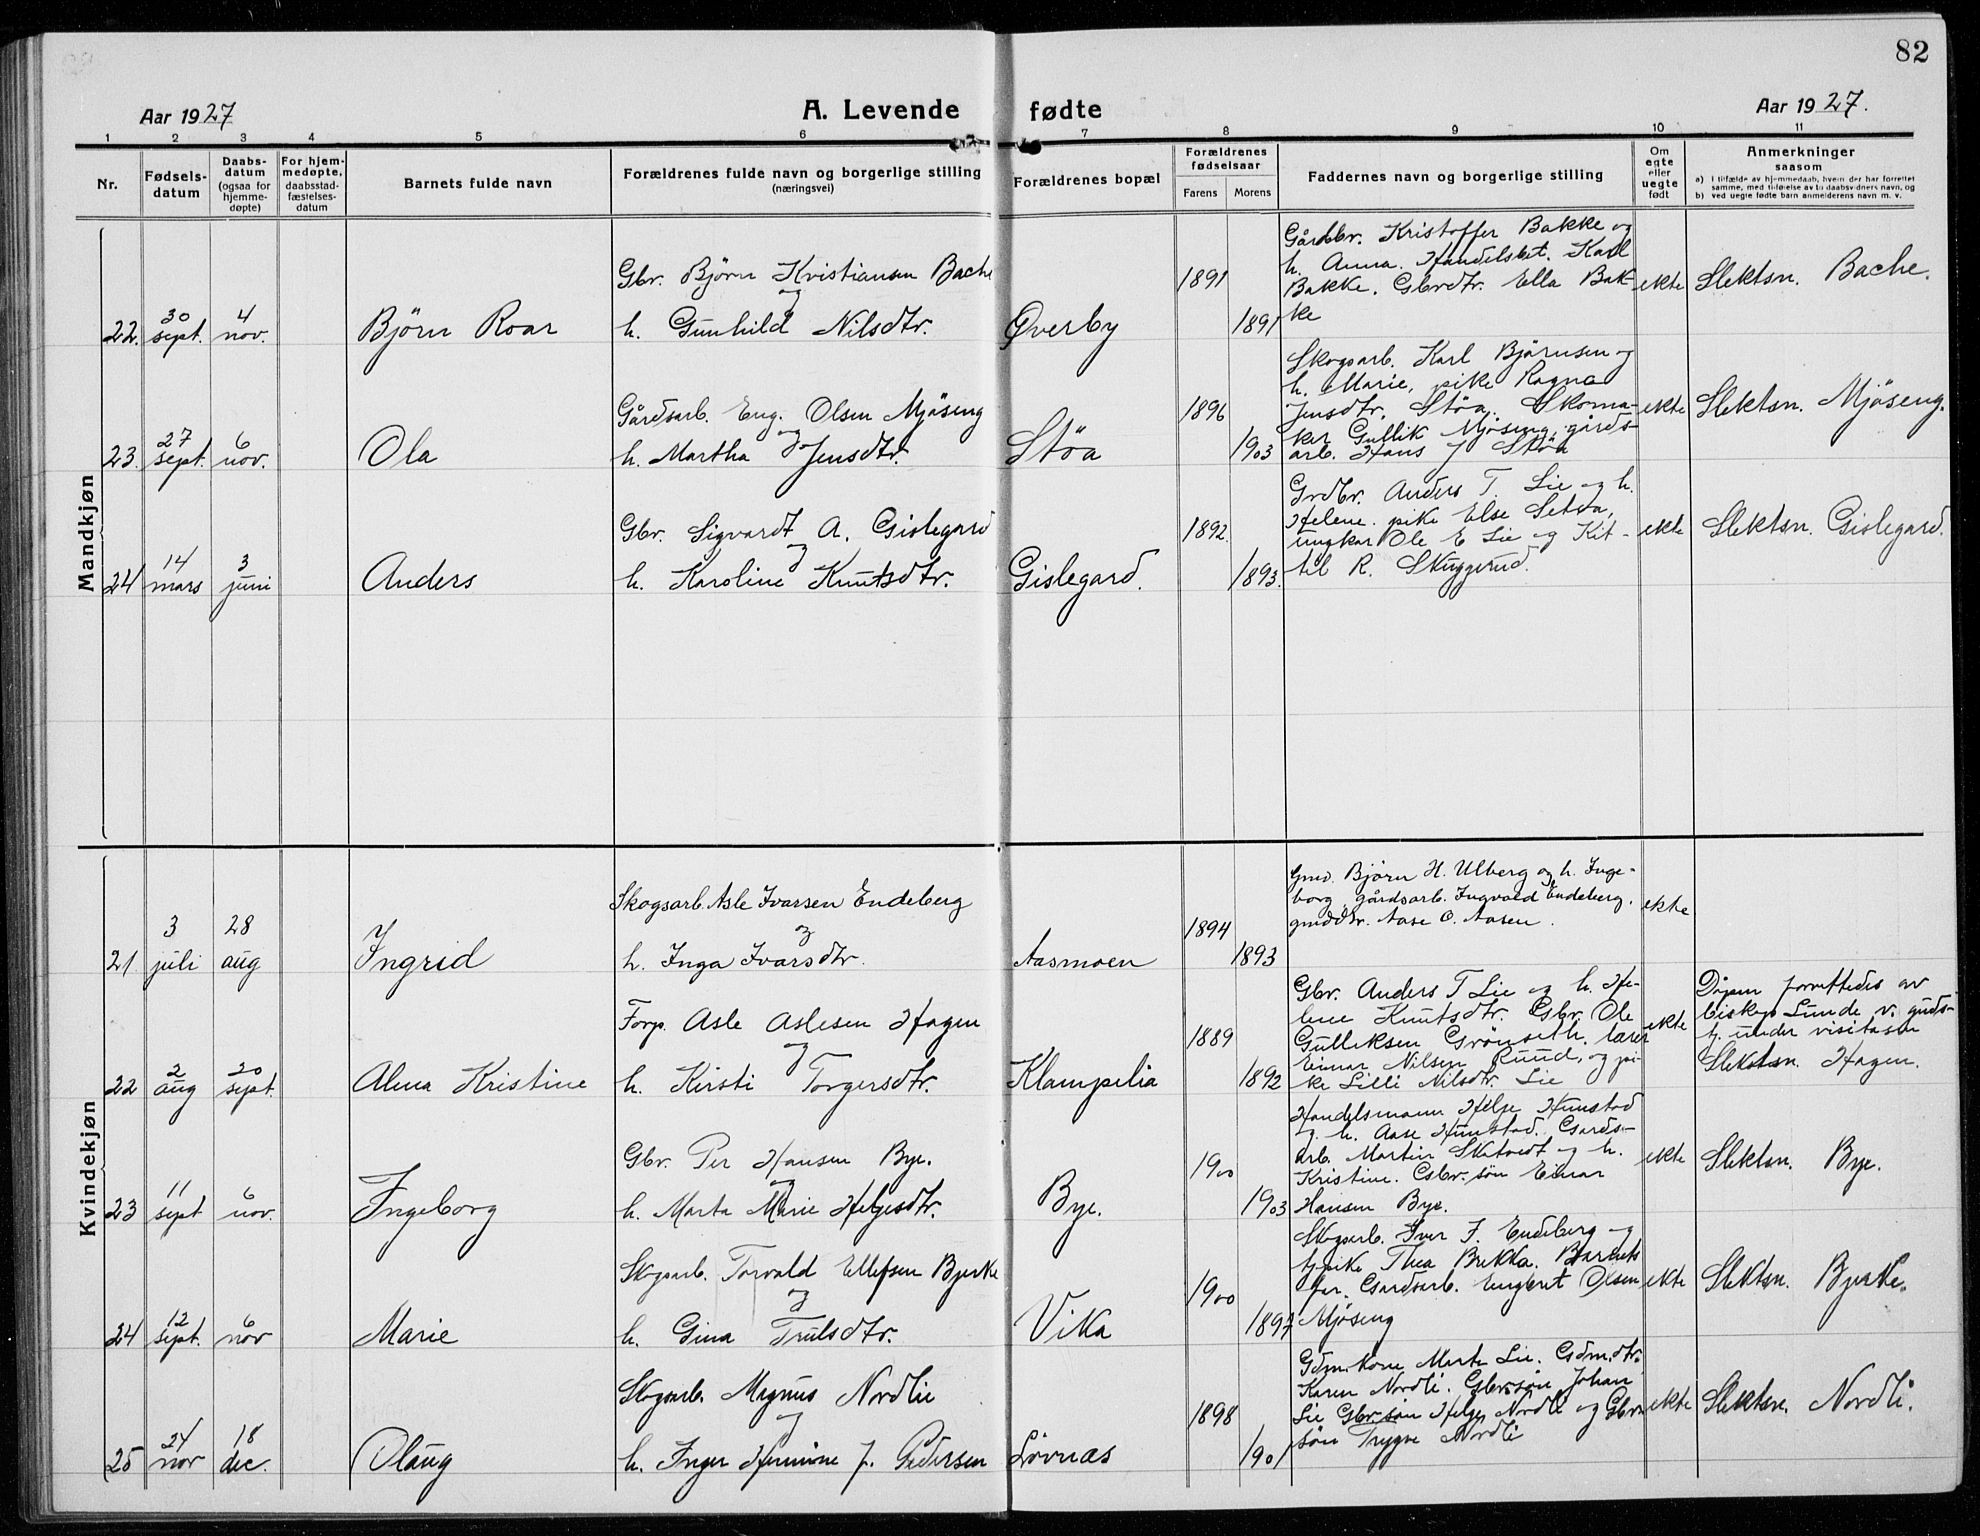 82
Aar 1927
A. Levende fødte
Aar 1927.
1 2 3 4 5 6 7 8 9 10 11
Nr.
Fødsels-
datum
Daabs-
datum
(ogsaa for
hjemme-
døpte)
For hjem-
medøpte,
daabsstad-
fæstelses-
datum
Barnets fulde navn
Forældrenes fulde navn og borgerlige stilling
(næringsvei)
Forældrenes bopæl
Forældrenes
fødselsaar
Farens Morens
Faddernes navn og borgerlige stilling
Om
egte
eller
uegte
født
Anmerkninger
saasom
a) i tilfælde av hjemmedaab, hvem der har forrettet
samme, med tilføielse av to daabsvidners navn, og
b) ved uegte fødte barn anmelderens navn m. v.
Mandkjøn
22. 30 sept. 4 nov.
Björn Roar
Gbr. Björn Kristiansen Bache
og
h. Gunhild Nilsdtr.
Øverby
1891
1891
Gårdbr. Kristoffer Bakke og
h. Anna. Handelsbet. Karl
Bakke. Gbrdtr. Ella Bak-
ke
ekte
Slektsn. Bache.
23. 27 sept. 6 nov.
Ola
Gårdsarb. Eng. Olsen Mjöseng
og
h. Martha Jensdtr.
Stöa
1896
1903
Skogsarb. Karl Björnsen og
h. Marie, pike Ragna
Jensdtr. Stöa. Skoma-
ker Gullik Mjöseng, gårds-
arb. Hans J Stöa
ekte
Slektsn. Mjöseng.
24 14 mars 3 juni
Anders
Gbr. Sigvardt A. Gislegard
og
h. Karoline Knutsdtr.
Gislegard.
1892.
1893.
Grdbr. Anders T. Lie og h.
Helene. pike Else Setva,
ungkar Ole E Lie og Kit-
til R. Skuggerud.
ekte
Slektsn. Gislegard.
Kvindekjøn
21 3 juli 28 aug
Ingrid
Skogsarb. Asle Ivarsen Endeberg
og
h. Inga Ivarsdtr.
Aasmoen
1894
1893
Gmd. Björn H. Ulberg og h. Inge-
borg, gårdsarb. Ingvald Endeberg.
gmddtr. Aase O. Aasen.
ekte
22 2 aug 20 sept.
Alma Kristine
Forp. Asle Aslesen Hagen
og
h. Kirsti Torgersdtr.
Klampelia
1889
1892
Gbr. Anders T Lie og h. He-
lene Knutsdtr. Gbr. Ole
Gulliksen Grönseth. lærer
Einar Nilsen Ruud, og pi-
ke Lilli Nilsdtr. Lie
ekte
Dåpen forrettedes av
biskop Lunde v. guds-
tj. under visitasen
Slektsn. Hagen.
23 11 sept 6 nov.
Ingeborg
Gbr. Per Hansen Bye.
og
h. Marta Marie Helgesdtr.
Bye.
1900
1903
Handelsmann Helge Hunstad
og h. Aase Hunstad. Gards-
arb. Martin Skatvedt og h.
Kristine. Gbr. søn Einar
Hansen Bye.
ekte
Slektsn. Bye.
24 12 sept. 6 nov
Marie
Skogsarb. Torvald Ellefsen Bjerke
og
h. Gina Trulsdtr.
Vika
1900
1897
Skogsarb. Iver I. Endeberg og
tj.pike Thea Brekka. Barnets
far. Gardsarb. Engbret Olsen
Mjöseng
ekte
Slektsn. Bjerke.
25 24 nov 18 dec.
Olaug
Skogsarb. Magnus Nordlie
og
h. Inger Hermine J. Pedersen
Lövnæs
1898
1901
Gdm.kone Marte Lie. Gdm.dtr.
Karen Nordli. Gbrsøn Johan
Lie Gbr. søn Helge Nordli og Gbr.
søn Trygve Nordli
ekte
Slektsn. Nordli.